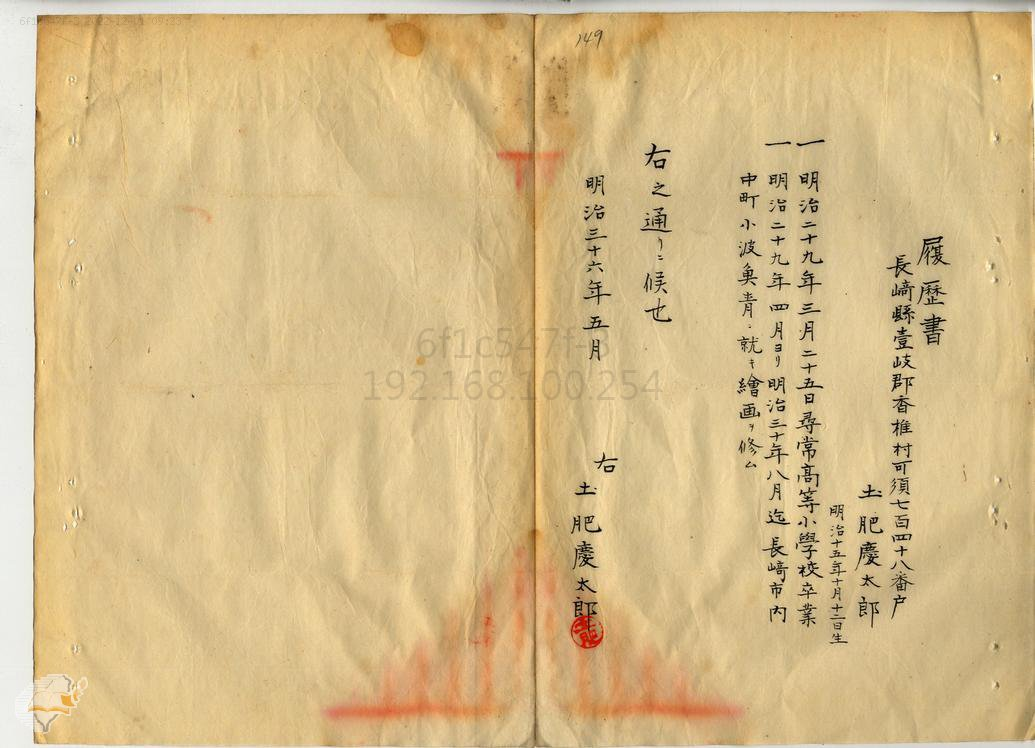 6f1c547f-3 2022-12-01 09:23
149
履歴書
長﨑縣壹岐郡香椎村可須七百四十八番戸
土肥慶太郎
明治十五年十月十二日生
一 明治二十九年三月二十五日尋常高等小學校卒業
一 明治二十九年四月ヨリ明治三十年八月迄長﨑市内
中町小波魚青ニ就キ繪画ヲ修ム
右之通リニ候也
明治三十六年五月
右
土肥慶太郎
6f1c547f-3
192.168.100.254